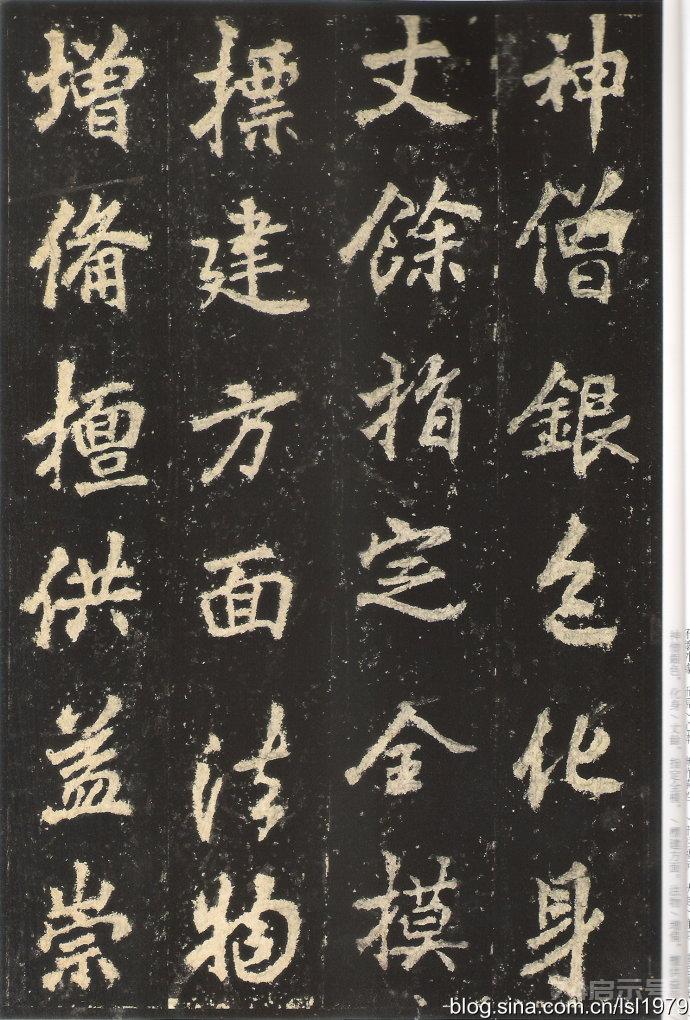 神僧銀色化身
丈餘指定全摸
摽建方面法物
增俻擅供益崇
blog.sina.com.cn/lsl1979
启示号